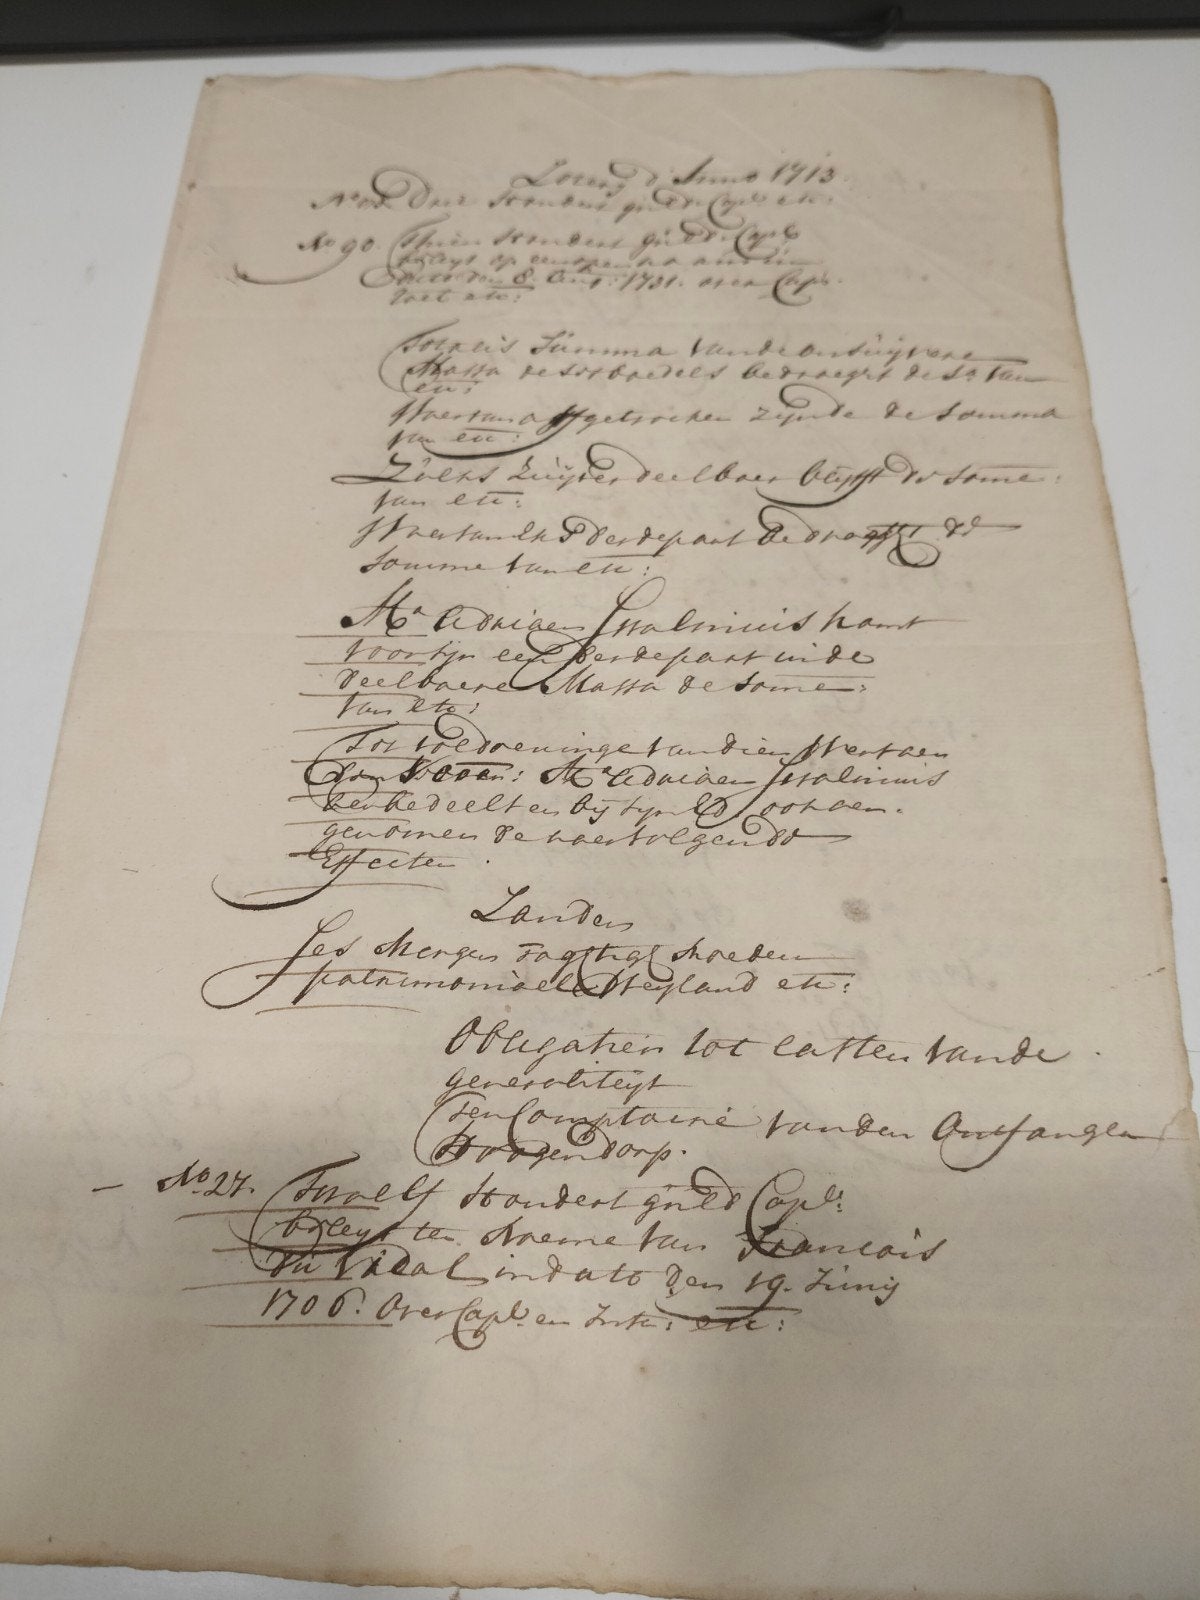 Lotery d' Anno 1713.
Drie Hondert guld: Capl. etc:
No. 90. Thien Hondert guld: Capl.
dato den 8. Aug: 1731. over Capl.
etc:
Totaelis Summa vande onsuijvere
Massa des boedels bedraegt de Sa. van
etc:
Waervan affgetrocken zijnde de Somma
van etc:
Zulks zuijver deelbaer blijft de Some:
van etc:
Waervan een derdepart bedraegt de
Somme van etc:
Mr. Adriaen hamt
voor sijn een derdepart inde
deelbaere Massa de Some:
van etc:
Tot voldoeninge van dien Werden
den Heer: Mr. Adriaen
aenbedeelt en bij sijn Ed. aen-
genomen de naervolgende
Effecten.
Landen
Ses Mergen tagtigh Roeden
patrimoniaele Weyland etc:
Obligatien tot lasten vande
generaliteyt
Ten Comptoire vanden Ontfanger
Hoogendorp.
No. 27. Twaelf Hondert guld Capl:
beleyt ten Naeme van Francois
du Vidal in dato den 19. Junij
1706. Over Capl. en Intr: etc: